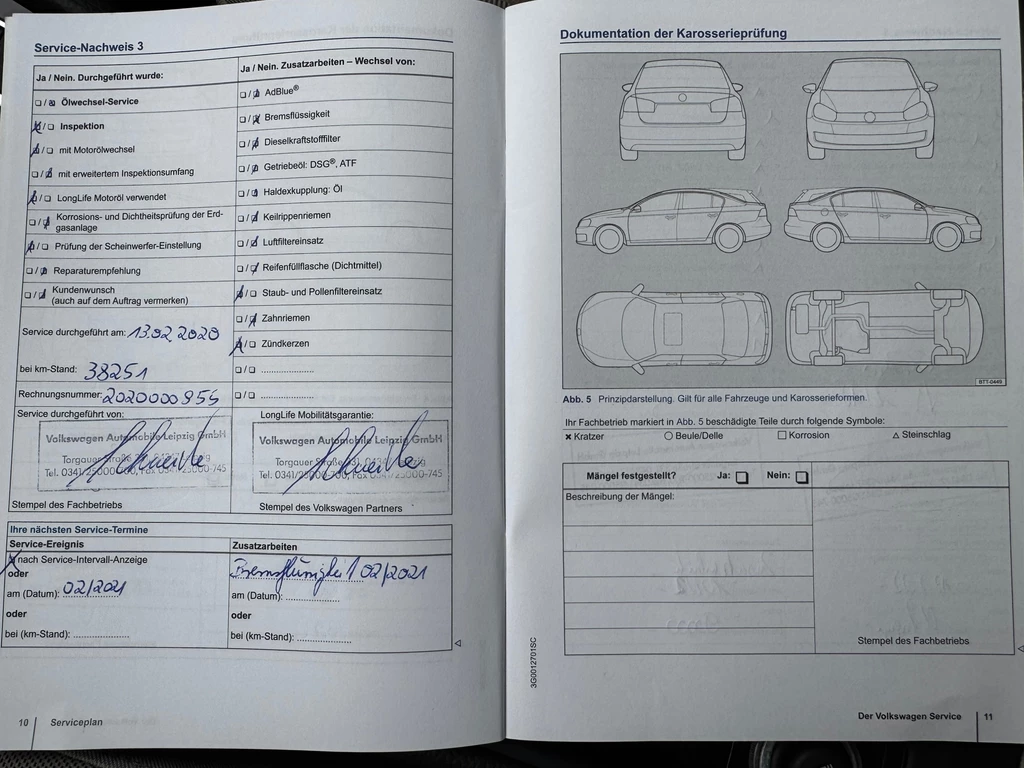 Service-Nachweis 3
Ja / Nein. Durchgeführt wurde:
Ölwechsel-Service
Inspektion
mit Motorölwechsel
mit erweitertem Inspektionsumfang
LongLife Motoröl verwendet
Korrosions- und Dichtheitsprüfung der Erd-
gasanlage
Prüfung der Scheinwerfer-Einstellung
Reparaturempfehlung
Kundenwunsch
(auch auf dem Auftrag vermerken)
Service durchgeführt am: 13.02.2020
bei km-Stand: 38251
Rechnungsnummer: 2020000955
Ja / Nein. Zusatzarbeiten – Wechsel von:
AdBlue®
Bremsflüssigkeit
Dieselkraftstofffilter
Getriebeöl: DSG®, ATF
Haldexkupplung: Öl
Keilrippenriemen
Luftfiltereinsatz
Reifenfüllflasche (Dichtmittel)
Staub- und Pollenfiltereinsatz
Zahnriemen
Zündkerzen
Service durchgeführt von:
Volkswagen Automobile Leipzig GmbH
Torgauer
Tel. 0341/25000-745
Stempel des Fachbetriebs
LongLife Mobilitätsgarantie:
Volkswagen Automobile Leipzig GmbH
Torgauer Straße
Tel. 0341/25000-700, Fax 0341/25000-745
Stempel des Volkswagen Partners
Ihre nächsten Service-Termine
Service-Ereignis
nach Service-Intervall-Anzeige
oder
am (Datum): 02/2021
oder
bei (km-Stand):
Zusatzarbeiten
02/2021
am (Datum):
oder
bei (km-Stand):
10 Serviceplan
Dokumentation der Karosserieprüfung
BTT-0449
Abb. 5 Prinzipdarstellung. Gilt für alle Fahrzeuge und Karosserieformen.
Ihr Fachbetrieb markiert in Abb. 5 beschädigte Teile durch folgende Symbole:
× Kratzer ○ Beule/Delle □ Korrosion △ Steinschlag
Mängel festgestellt? Ja: Nein:
Beschreibung der Mängel:
Stempel des Fachbetriebs
3G0012701SC
Der Volkswagen Service 11